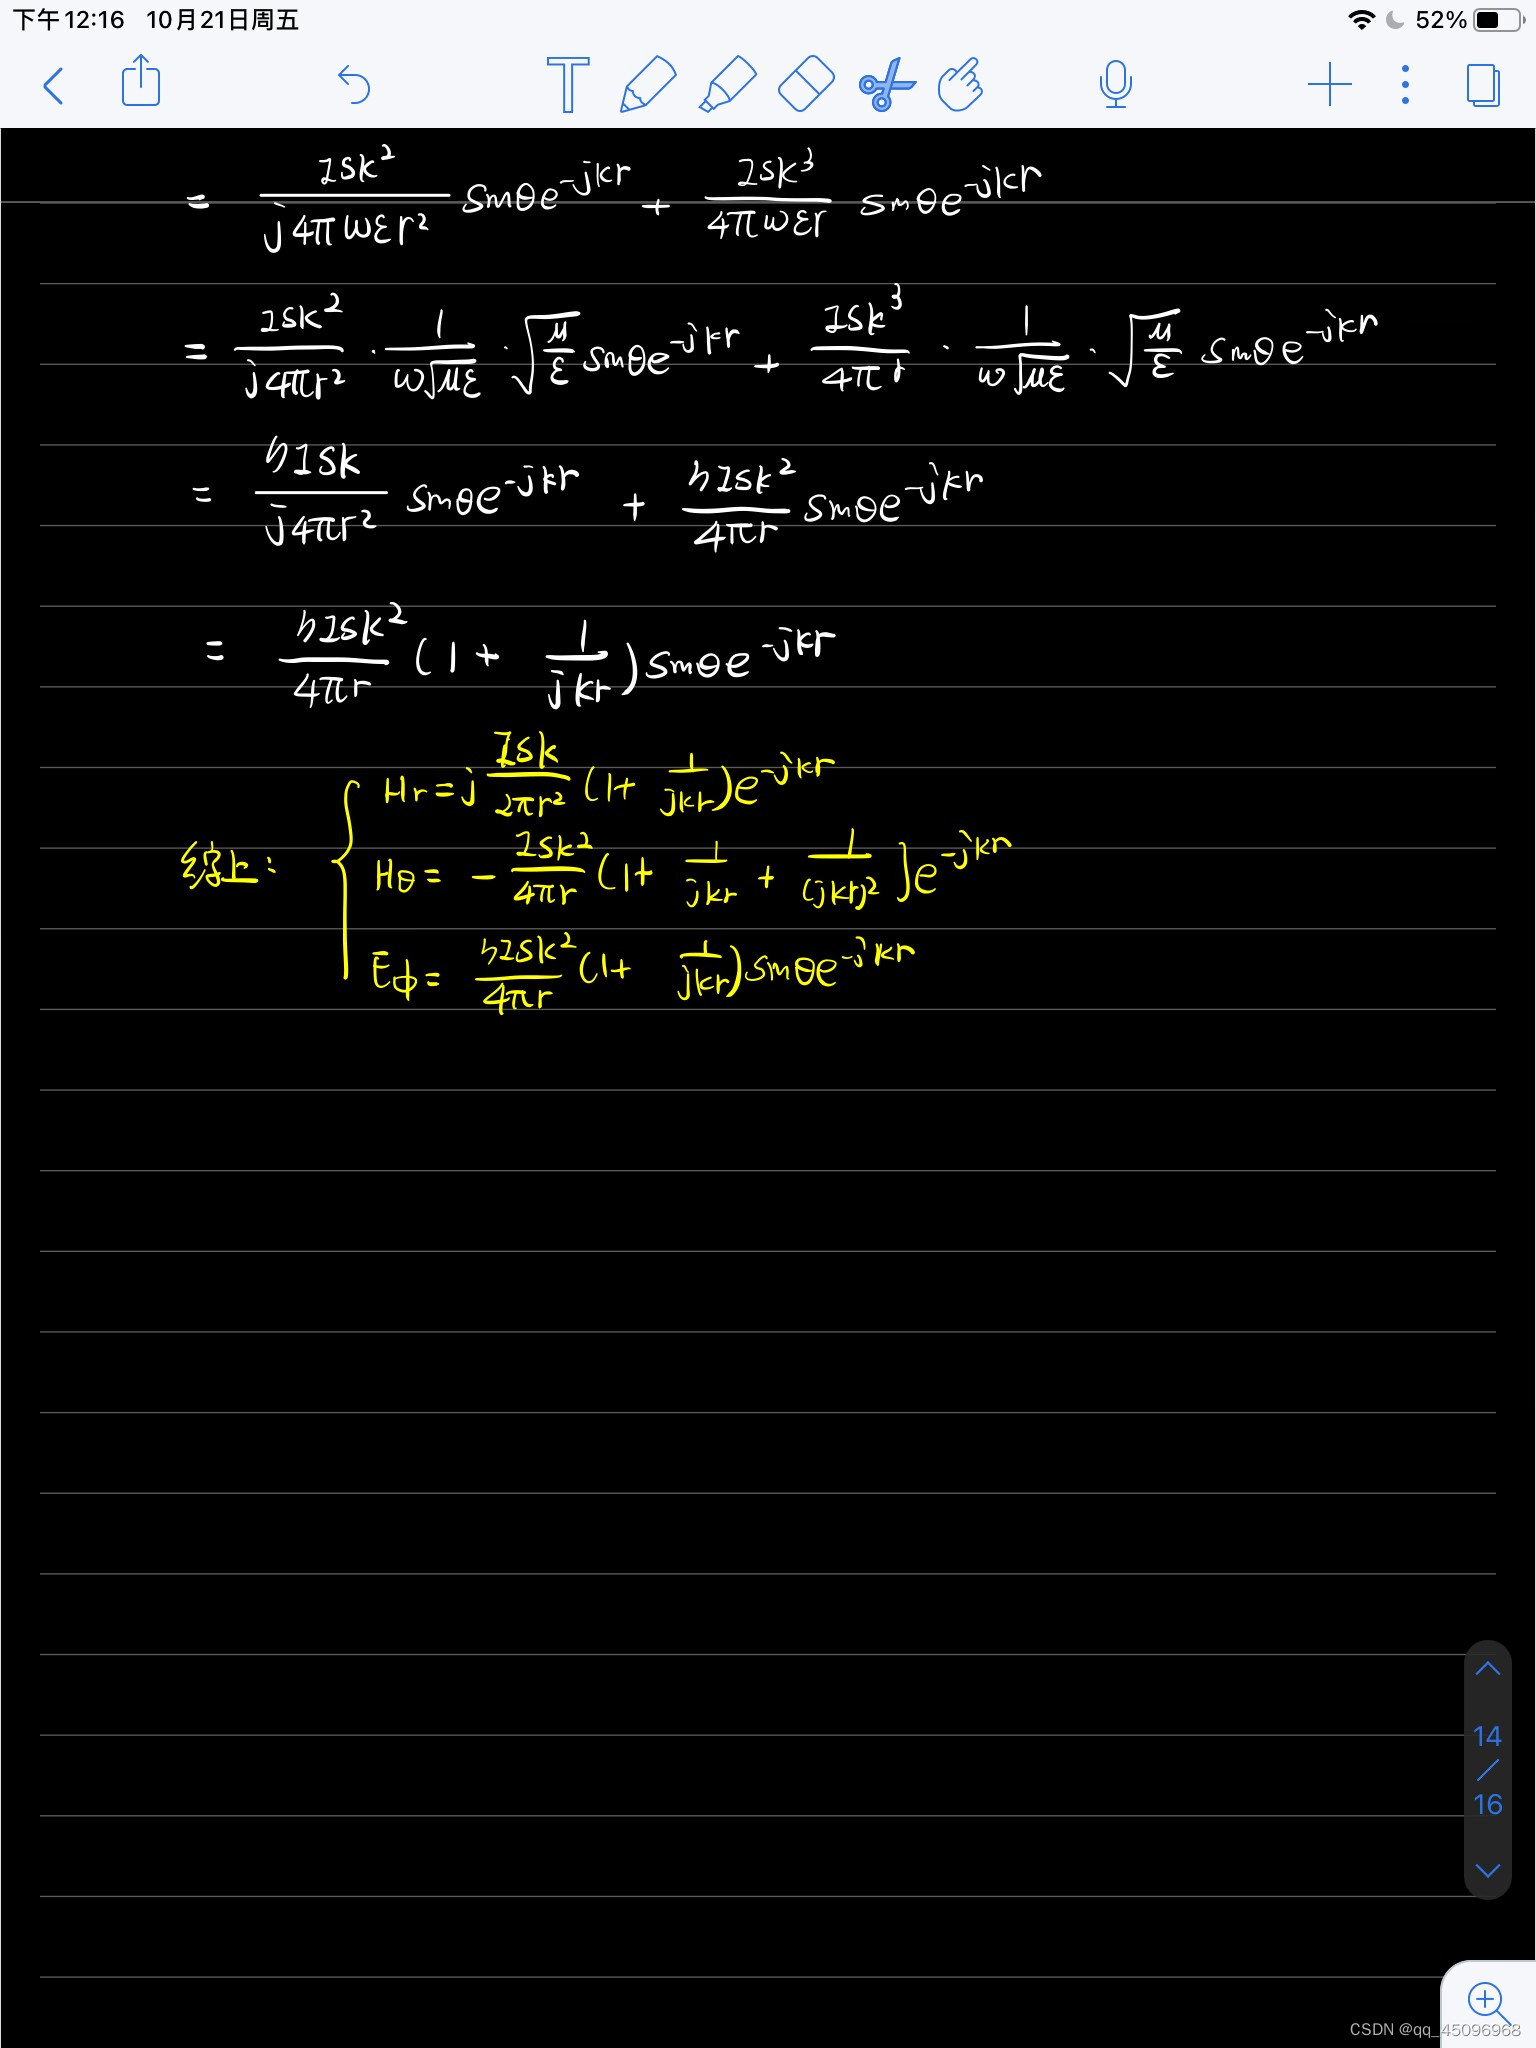 下午12:16 10月21日周五 52%
= \frac{ISk^2}{j4πωεr^2} sinθe^{-jkr} + \frac{ISk^3}{4πωεr} sinθe^{-jkr}
= \frac{ISk^2}{j4πr^2} · \frac{1}{ω\sqrt{με}} · \sqrt{\frac{μ}{ε}} sinθe^{-jkr} + \frac{ISk^3}{4πr} · \frac{1}{ω\sqrt{με}} · \sqrt{\frac{μ}{ε}} sinθe^{-jkr}
= \frac{ηISk}{j4πr^2} sinθe^{-jkr} + \frac{ηISk^2}{4πr} sinθe^{-jkr}
= \frac{ηISk^2}{4πr} (1+ \frac{1}{jkr}) sinθe^{-jkr}
Hr = j \frac{ISk}{2πr^2} (1+ \frac{1}{jkr}) e^{-jkr}
综上: Hθ = - \frac{ISk^2}{4πr} (1+ \frac{1}{jkr} + \frac{1}{(jkr)^2} ] e^{-jkr}
Eφ = \frac{ηISk^2}{4πr} (1+ \frac{1}{jkr}) sinθe^{-jkr}
14
/
16
CSDN @qq_45096968